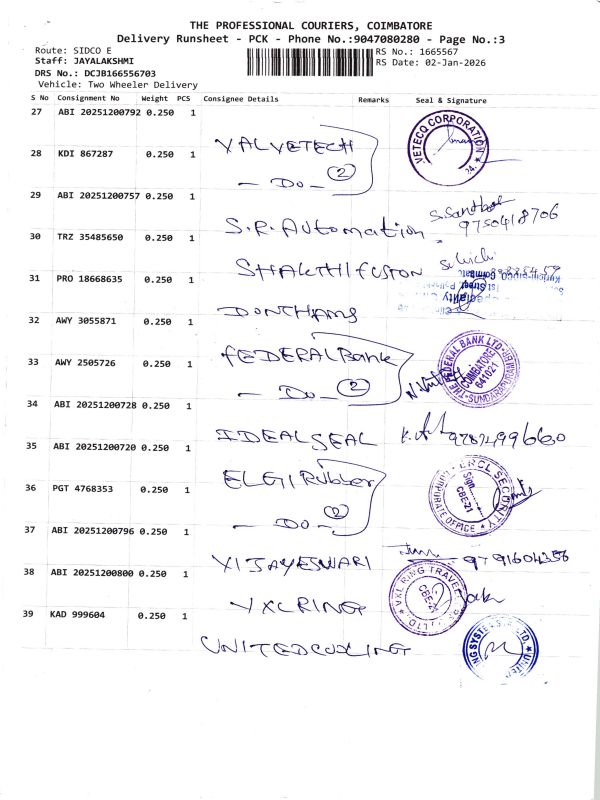 THE PROFESSIONAL COURIERS, COIMBATORE
Delivery Runsheet - PCK - Phone No.:9047080280 - Page No.:3
Route: SIDCO E
RS No.: 1665567
Staff: JAYALAKSHMI
RS Date: 02-Jan-2026
DRS No.: DCJB166556703
Vehicle: Two Wheeler Delivery
S No Consignment No Weight PCS Consignee Details Remarks Seal & Signature
27 ABI 20251200792 0.250 1
VALVETECH
VETECQ CORPORATION
28 KDI 867287 0.250 1
- Do - 2
29 ABI 20251200757 0.250 1
S.R. Automation
9750418706
30 TRZ 35485650 0.250 1
SHAKTHI fusion
31 PRO 18668635 0.250 1
DONTHAMS
32 AWY 3055871 0.250 1
FEDERAL Bank
THE FEDERAL BANK LTD
COIMBATORE
641021
33 AWY 2505726 0.250 1
- Do - 2
34 ABI 20251200728 0.250 1
IDEAL SEAL
35 ABI 20251200720 0.250 1
ELGI Rubber
ERCL SECURITY
Sign
CBE-21
CORPORATE OFFICE
36 PGT 4768353 0.250 1
- Do - 2
37 ABI 20251200796 0.250 1
VIJAYESWARI
9791604356
38 ABI 20251200800 0.250 1
VXL RING
VXL RING TRAVEL
CBE-21
39 KAD 999604 0.250 1
UNITED COOLING